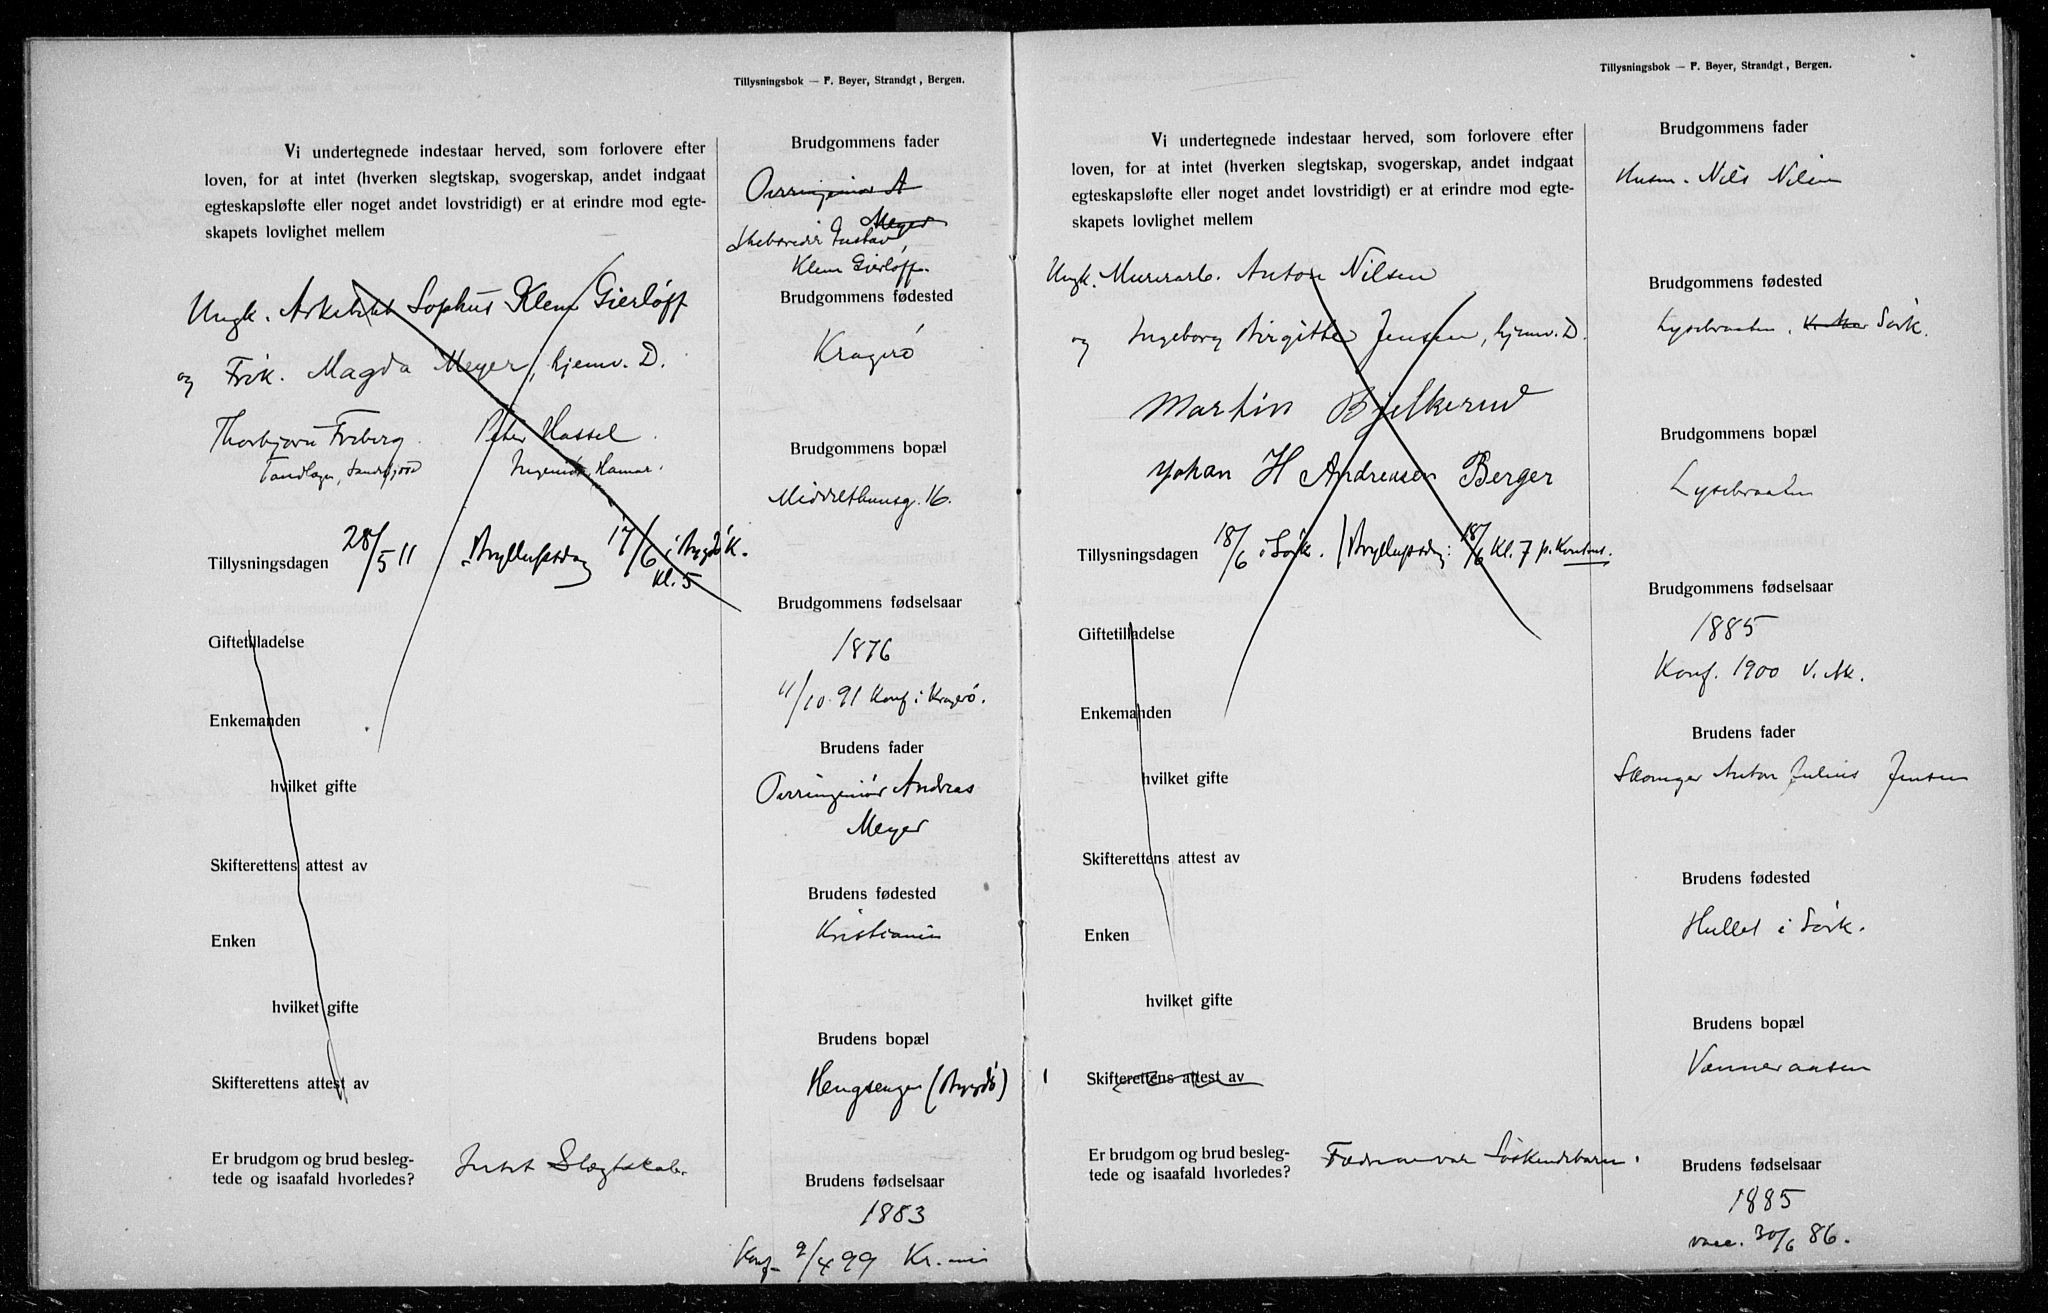 Tillysningsbok — F. Beyer, Strandgt, Bergen.
Vi undertegnede indestaar herved, som forlovere efter
loven, for at intet (hverken slegtskap, svogerskap, andet indgaat
egteskapsløfte eller noget andet lovstridigt) er at erindre mod egte-
skapets lovlighet mellem
Ungk. Arkitekt Sophus Klem Gierløff
og Frøk. Magda Meyer, hjemv. D.
Thorbjørn Froberg. Peter Hassel.
Tandlæge, Sandefjord Ingeniør, Hamar.
Tillysningsdagen 28/5 11 Bryllupsdag 17/6 i Bygdø K.
Kl. 5
Giftetilladelse
Enkemanden
hvilket gifte
Skifterettens attest av
Enken
hvilket gifte
Skifterettens attest av
Er brudgom og brud beslegtede og isaafald hvorledes? Intet Slægtskab.
Brudgommens fader
Overingeniør A
Meyer
Skibsreder Gustav
Klem Gierløff.
Brudgommens fødested
Kragerø
Brudgommens bopæl
Middelthunsg. 16.
Brudgommens fødselsaar
1876
11/10 91 Konf. i Kragerø.
Brudens fader
Overingeniør Andreas
Meyer
Brudens fødested
Kristiania
Brudens bopæl
Hengsenger (Bygdø)
Brudens fødselsaar
1883
Konf. 9/4 99 Kr.ania
Tillysningsbok — F. Beyer, Strandgt, Bergen.
Vi undertegnede indestaar herved, som forlovere efter
loven, for at intet (hverken slegtskap, svogerskap, andet indgaat
egteskapsløfte eller noget andet lovstridigt) er at erindre mod egte-
skapets lovlighet mellem
Ungk. Murerarb. Anton Nilsen
og Ingeborg Birgitte Jensen, hjemv. D.
Martin Bjelkerud
Johan H Andreasen Berger
Tillysningsdagen 18/6 i Sørk. Bryllupsdag: 18/6 Kl. 7 p. Kontoret.
Giftetilladelse
Enkemanden
hvilket gifte
Skifterettens attest av
Enken
hvilket gifte
Skifterettens attest av
Er brudgom og brud beslegtede og isaafald hvorledes? Fædrene var Søskendebarn.
Brudgommens fader
Husm. Nils Nilsen
Brudgommens fødested
Lysebraaten, Sørk.
Brudgommens bopæl
Lysebraaten
Brudgommens fødselsaar
1885
Konf. 1900 V. Ak.
Brudens fader
Skomager Anton Julius Jensen
Brudens fødested
Hullet i Sørk.
Brudens bopæl
Venneraasen
Brudens fødselsaar
1885
vacc. 30/6 86.